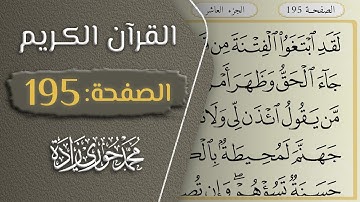 القرآن الكريم
الصفحة: 195
محمد حوري زاده
الصفحـة 195
الجزء العاشر
لَقَدِ ٱبْتَغَوُا۟ ٱلْفِتْنَةَ مِن قَ
جَآءَ ٱلْحَقُّ وَظَهَرَ أَمْرُ
مَّن يَقُولُ ٱئْذَن لِّى وَلَا
جَهَنَّمَ لَمُحِيطَةٌۢ بِٱلْكَ
حَسَنَةٌ تَسُؤْهُمْ ۖ وَإِن تُصِ